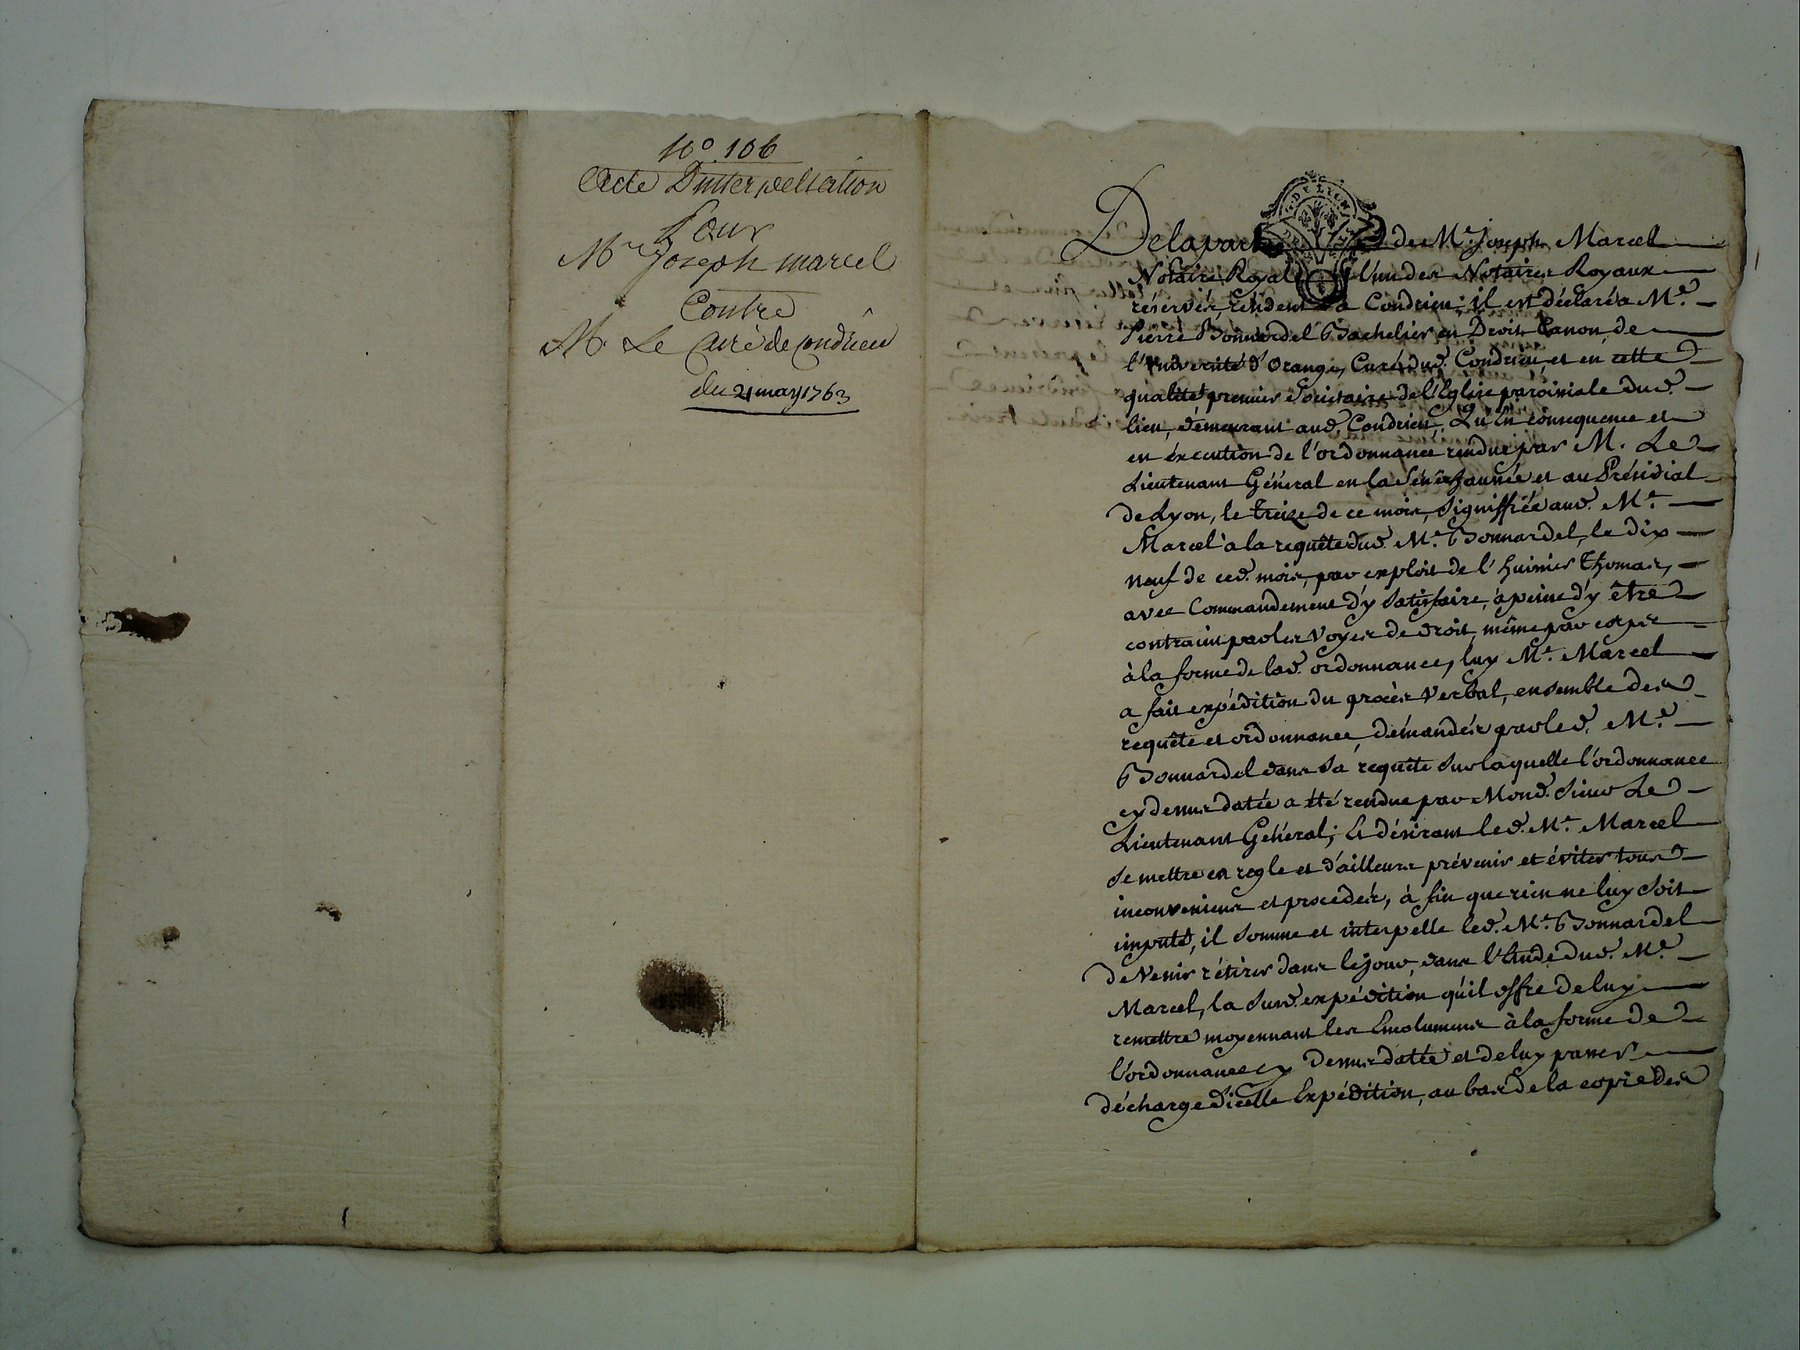 N.o 106
Acte D'interpellation
Pour
Mr Joseph marcel
Contre
Mr Le Curé de Condrieu
du 21 may 1763
G. DE LYON
De la part de Me. Joseph Marcel
Notaire Royal l'un des Notaires Royaux
réservés, résident a Condrieu; il est déclaré a Me.
Pierre Bonnardel Bachelier en Droit Canon, de
l'université d'Orange, Curé dud. Condrieu, et en cette
qualité premier Sociétaire de l'Eglise paroissiale dud.
lieu, démeurant aud. Condrieu, Qu'En conséquence et
en éxécution de l'ordonnance rendue par M. Le
Lieutenant Général en la Sénéchaussée et au Présidial
de Lyon, le treize de ce mois, Signiffiée aud. Me.
Marcel à la requête dud. Me. Bonnardel, le dix
neuf de ced. mois, par exploit de l'huissier Thomas,
avec Commandement d'y Satisfaire, à peine d'y être
contraint par les voyes de droit, même par corps
à la forme de lad. ordonnance, luy Me. Marcel
a fait expédition du procès verbal, ensemble des
requête et ordonnance, démandés par led. Me.
Bonnardel dans Sa requête Sur laquelle l'ordonnance
cy dessus datée a été rendue par Mond. Sieur Le
Lieutenant Général; Et désirant led. Me. Marcel
Se mettre en regle et d'ailleurs prévenir et éviter tous
inconveniens et procedés, à fin que rien ne luy Soit
imputé, il Somme et interpelle led. Me. Bonnardel
de Venir rétirer dans le jour, dans l'Etude dud. Me.
Marcel, la Susd. expédition qu'il offre de luy
remettre moyennant les Emolumens à la forme de
l'ordonnance cy Dessus dattée et de luy passer
décharge d'icelle Expédition, au bas de la copie des